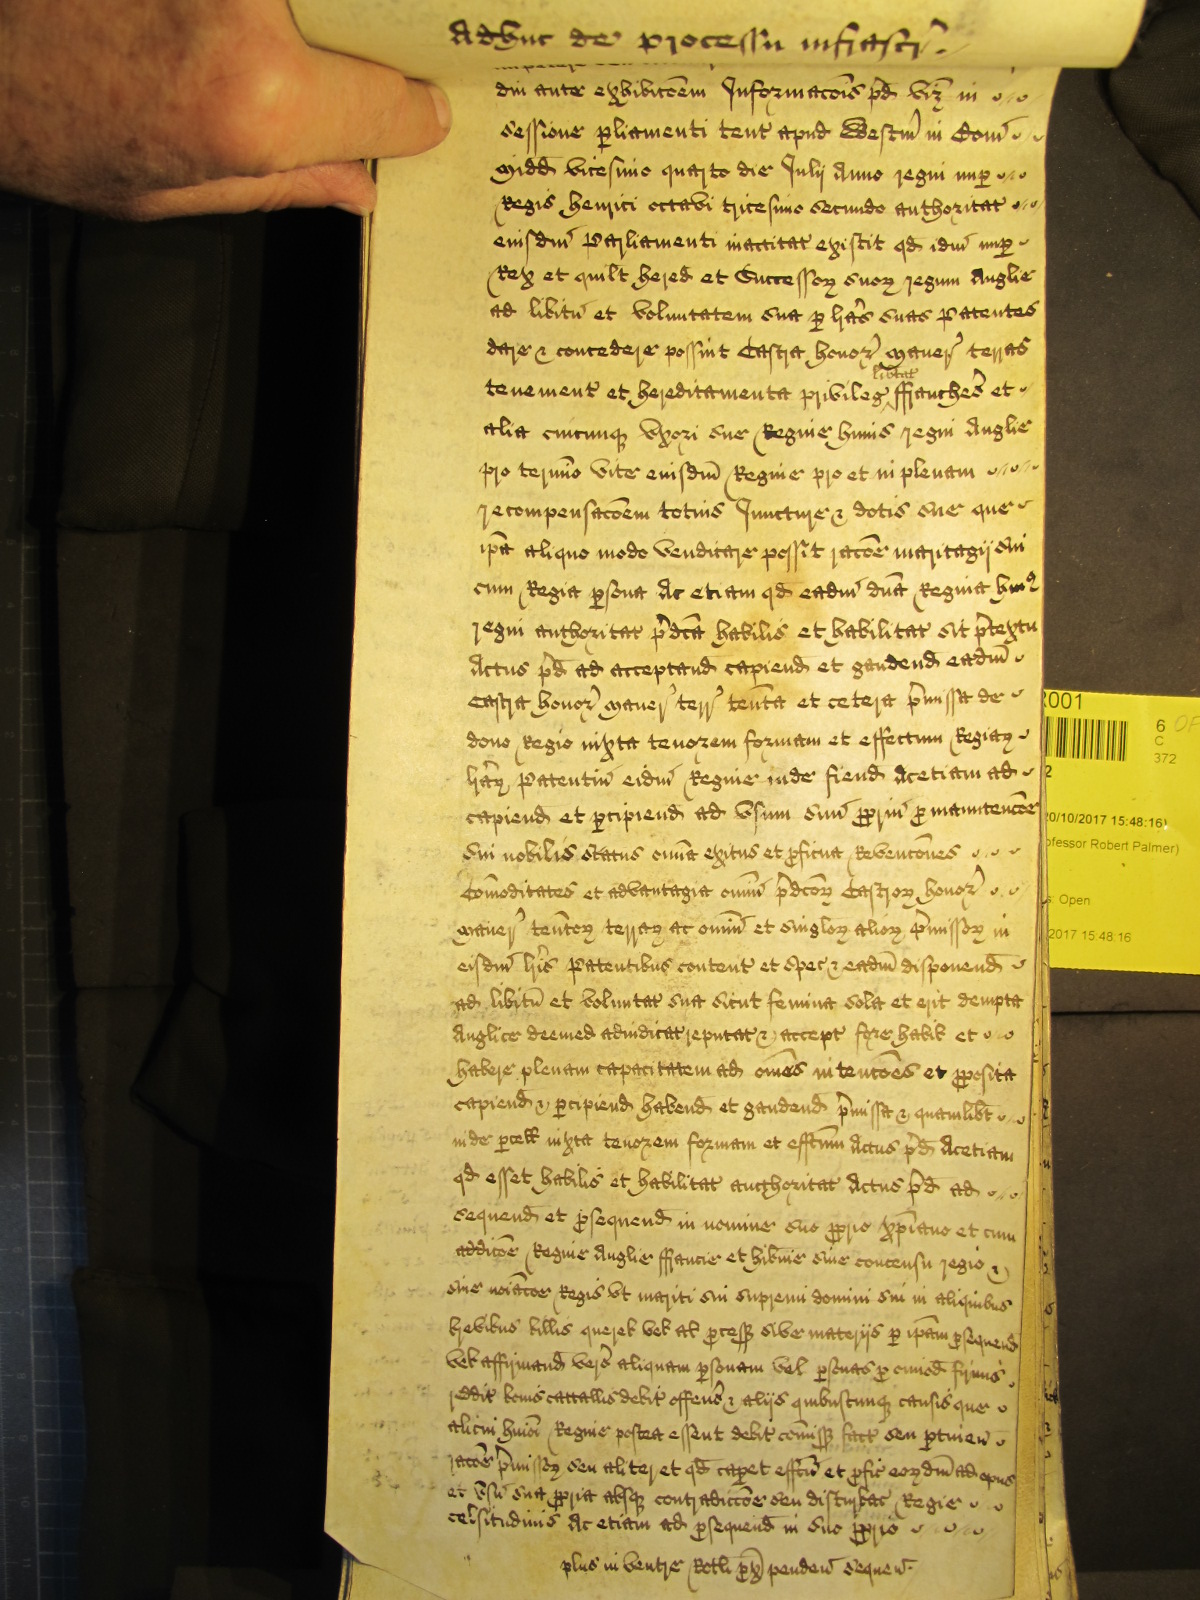 Adhuc de processu infrascr'
din ante exhibicoem Informacois pd viz in
sessione pliamenti tent apud Westm in Com
Midd vicesimo quarto die Julij Anno regni nup
Regis henrici octavi tricesimo secundo authoritat
eiusdm Parliamenti inactitat existit qd idm nup
Rex et quilt hered et Successor suor regum Anglie
ad libitu et voluntatem sua p lras suas Patentes
dare & concedere possint Castra honor Maner terras
libtat
tenement et hereditamenta privileg ffranches et
alia cuicunq Uxori sue Regine huius regni Anglie
pro termino vite eiusdm Regine pro et in plenam
recompensacoem totius Juncture & dotis sue que
ipa aliquo modo vendicare possit racoe maritagij sui
cum Regia psona Ac etiam qd eadm dna Regina hui9
regni authoritat pdca habilis et habilitat sit ptextu
Actus pd ad acceptand capiend et gaudend eadm
Castra honor Maner terr tenta et cetera pmissa de
dono Regio iuxta tenorem formam et effectum Regiar
lrar Patentiu eidm Regine inde fiend Acetiam ad
capiend et pcipiend ad Usum suu ppriu p manutencoe
sui nobilis status omia exitus et pficua Revencones
Comoditates et advantagia omiu pdcor Castror honor
Maner tentor terrar ac omiu et singlor alior pmissor in
eisdm lris Patentibus content et spec & eadm disponend
ad libitu et voluntat sua sicut femina sola et erit dempta
Anglice deemed adiudicat reputat & accept fore habil et
habere plenam capacitatem ad omes intencoes et pposita
capiend & pcipiend habend et gaudend pmissa & quamlibt
inde pcell iuxta tenorem formam et effcum Actus pd Acetiam
qd esset habilis et habilitat aucthoritat Actus pd ad
sequend et psequend in nomine suo pprio xpiano et cum
addicoe Regine Anglie ffrancie et hibnie sine concensu regio &
sine noiacoe Regis ut mariti sui supremi domini sui in aliquibus
brevibus billis querel vel al pcess sive materijs p ipam psequend
vel affirmand vers aliquam psonam vel psonas p cuiusd firmis
reddit bonis catallis debit offens & alijs quibuscunq causis que
alicui huioi Regine postea essent debit comiss fact seu ptinen
racoe pmissor seu aliter et qd capet effcu et pfic eordm ad opus
et Usu sua ppria absq contradiccoe seu disturbac Regie
celsitudinis Ac etiam ad psequend in suo pprio
plus in ventre Rotli px pendent sequen